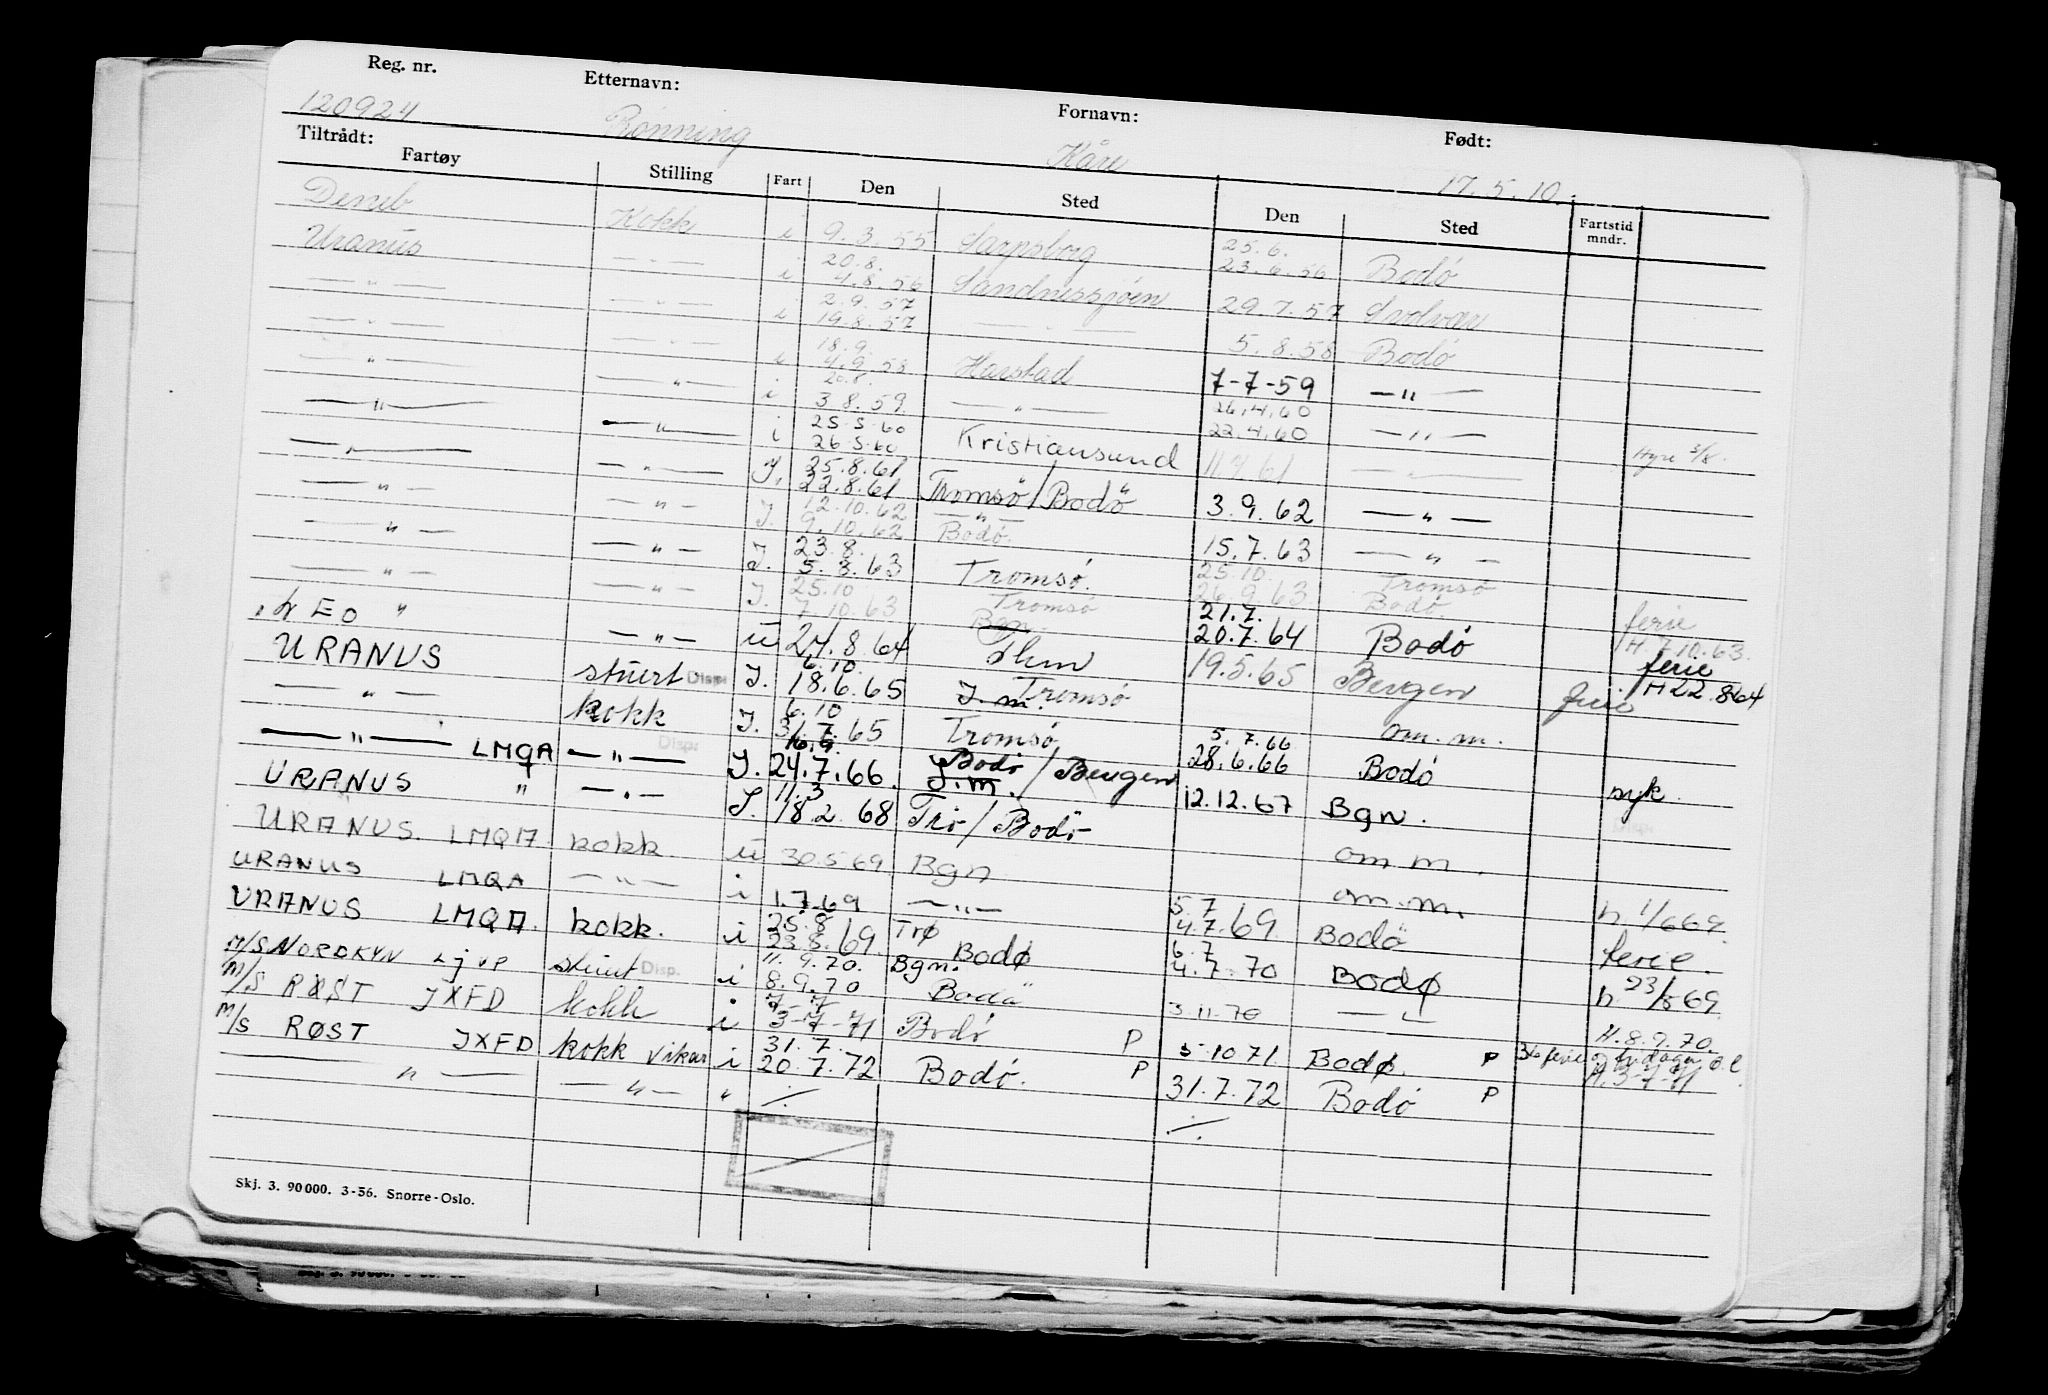 Reg. nr. Etternavn: Fornavn: Født:
120924 Rønning Kåre 17.5.10.
Tiltrådt:
Fartøy Stilling Fart Den Sted Den Sted Fartstid mndr.
Deneb Kokk i 9.3.55 Sarpsborg 25.6.
20.8. 23.6.56 Bodó
Uranus — " — i 4.8.56 Sandnessjøen 29.7.57 Svolvær
2.9.57
— " — — " — i 19.8.57 — " — 5.8.58 Bodó
18.9.
— " — — " — i 4.9.58 Harstad 7-7-59 — " —
20.8. 26.4.60
— " — — " — i 3.8.59 — " — 22.4.60 — " — Hyre 3/8.
25.5.60
— " — — " — i 26.5.60 Kristiansund 11.7.61 — " —
25.8.61
— " — — " — J. 22.8.61 Tromsö/Bodö 3.9.62 — " —
12.10.62 — " —
— " — — " — J. 9.10.62 Bodó. 15.7.63 — " —
23.8. 25.10. Tromsö
— " — — " — J. 5.8.63 Tromsó. 26.9.63 Bodó ferie
25.10 Tromsó 21.7.
— " — — " — J. 7.10.63 Bgn. 20.7.64 Bodó H. 7.10.63.
LEO " — " — u 24.8.64 Thm 19.5.65 Bergen ferie H 22.8.64
6.10. Tromsó
URANUS stuert Disp. J. 18.6.65 J. m. om. m. ferie
6.10
— " — kokk J. 31.7.65 Tromsó 5.7.66
28.6.66 Bodó syk.
16.9. Bodó
— " — LMQA — " — Disp. J. 24.7.66. J.m. / Bergen 12.12.67 Bgn.
11.3
URANUS " — " — J. 18.2.68 Trö/Bodö om m.
URANUS. LMQA. kokk. u 30.5.69 Bgn om.m. h. 1/6 69.
URANUS LMQA — " — i 1.7.69 — " — 5.7
4.7.69. Bodö ferie.
25.8 Trø
URANUS LMQA. kokk. i 23.8.69. Bodø 6.7
4.7.70 Bodø h. 23/8 69.
11.9.70. Bgn.
M/S NORDKYN LJVP stuert Disp. i 8.9.70 Bodö 3.11.70 — " — H. 8.9.70.
7-7
M/S RØST JXFD kokk i 3-7-71 Bodó P 5.10 71. Bodø. P ferie H. 3-7-71
31.7.
M/S RØST JXFD kokk vikar i 20.7.72 Bodó. P 31.7.72 Bodó P
— " — — " — " ./. ./.
Skj. 3. 90 000. 3-56. Snorre-Oslo.